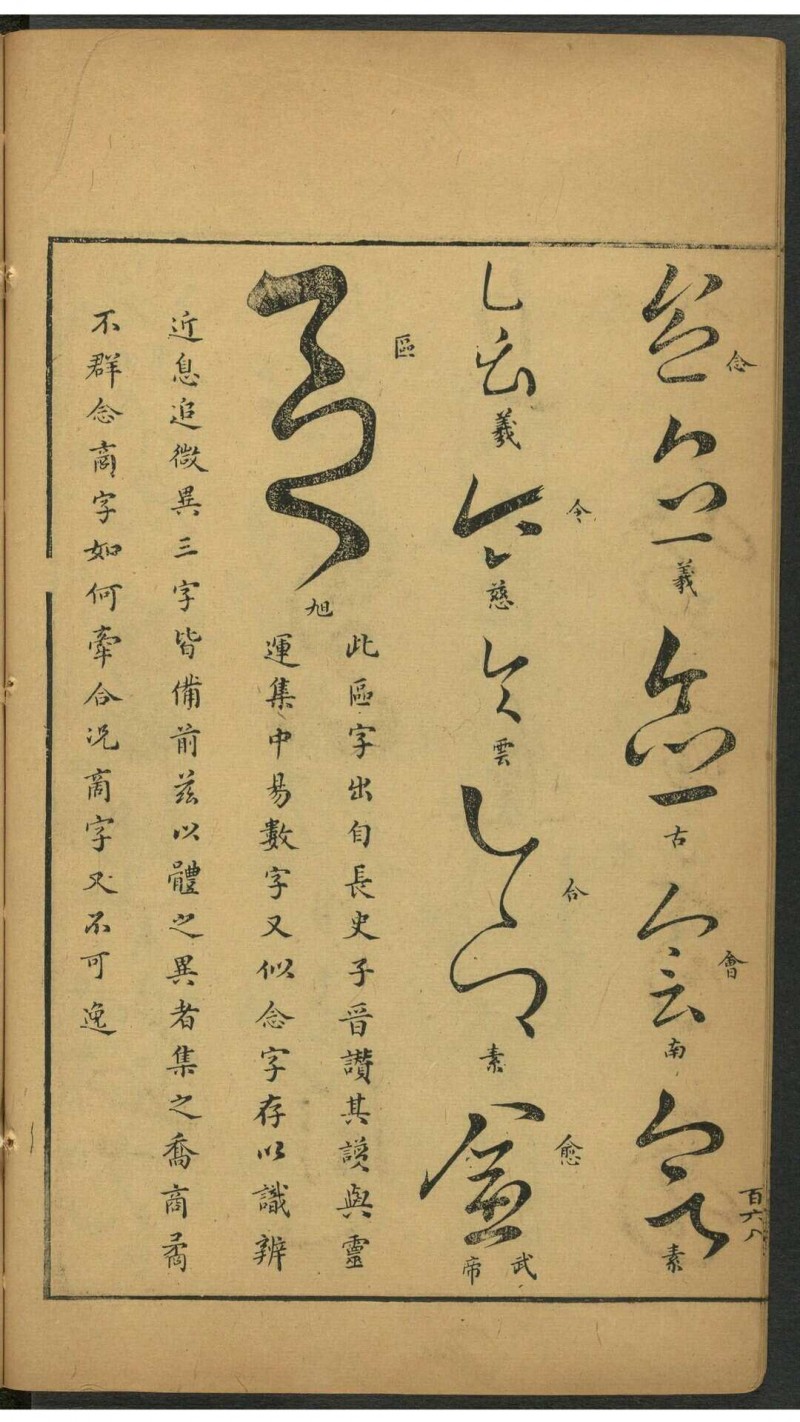 念 念 義 念 古 會 會 南 會 素
會 義 令 令 慈 令 雲 合 合 素 愈 愈 武帝
區 區 旭
此區字出自長史子晉讃其謨與靈
運集中易數字又似念字存以識辨
近息追微異三字皆備前茲以體之異者集之喬商矞
不群念商字如何牽合況商字又不可逸
百六八